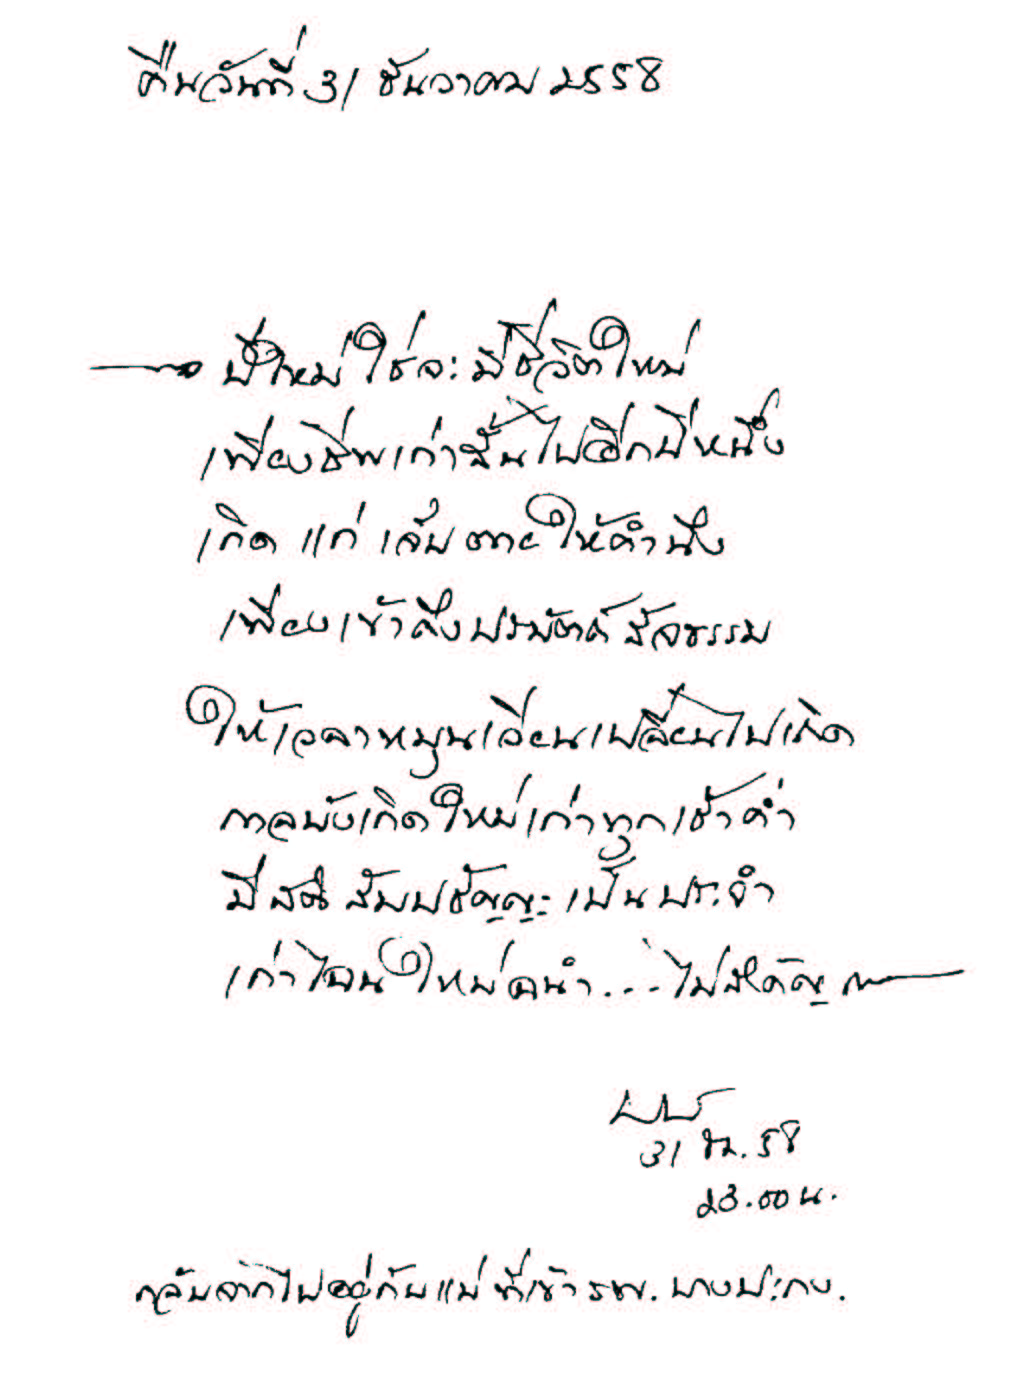 คืนวันที่ 31 ธันวาคม ๒๕๕8
ปีใหม่ ใช่จะมีชีวิตใหม่
เพียงชีพเก่าสั้นไปอีกปีหนึ่ง
เกิด แก่ เจ็บ ตาย ให้คำนึง
เพียงเข้าถึงปรมัตถ์ สัจธรรม
ให้เวลาหมุนเวียนเปลี่ยนไปเกิด
กาลบังเกิดใหม่เก่าทุกเช้าค่ำ
มีสติ สัมปชัญญะ เป็นประจำ
เก่าไฉน ใหม่ฉนำ...ไม่สำคัญ
31 ธค. 58
23.00 น.
กลับจากไปอยู่กับแม่ ที่เข้า รพ. บางปะกง.